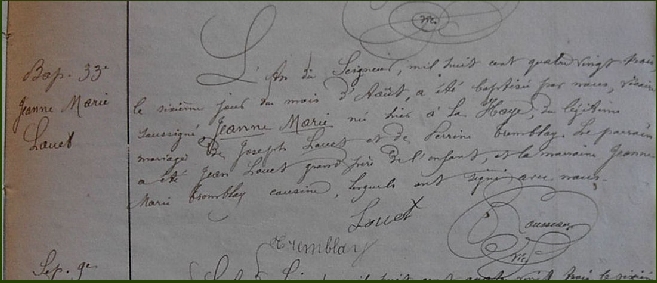 vic.
Bap. 33e
Jeanne Marie
Louet
L'An du Seigneur, mil huit cent quatre vingt trois
le sixième jour du mois d'Août, a été baptisée par nous, vicaire
soussigné, Jeanne Marie née hier à la Haye, du légitime
mariage de Joseph Louet et de Perrine Tremblay. Le parrain
a été Jean Louet grand père de l'enfant, et la marraine Jeanne
Marie Tremblay cousine, lesquels ont signé avec nous.
Louet
Rousseau
vic.
Trumblay
Sép. 9e